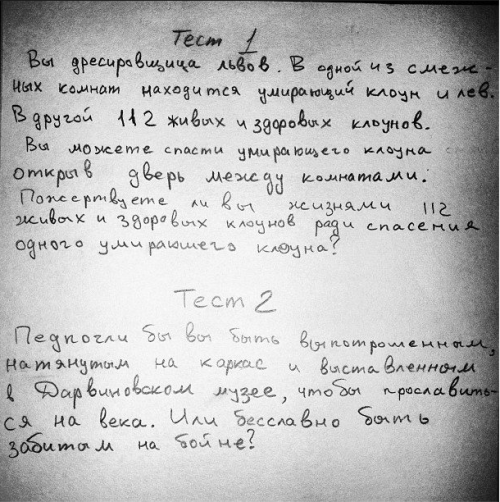 Тест 1
Вы дресировщица львов. В одной из смеж-
ных комнат находится умирающий клоун и лев.
В другой 112 живых и здоровых клоунов.
Вы можете спасти умирающего клоуна
открыв дверь между комнатами.
Пожертвуете ли вы жизнями 112
живых и здоровых клоунов ради спасения
одного умирающего клоуна?
Тест 2
Педпочли бы вы быть выпотрошенным,
натянутым на каркас и выставленным
в Дарвиновском музее, чтобы прославить-
ся на века. Или бесславно быть
забитым на бойне?